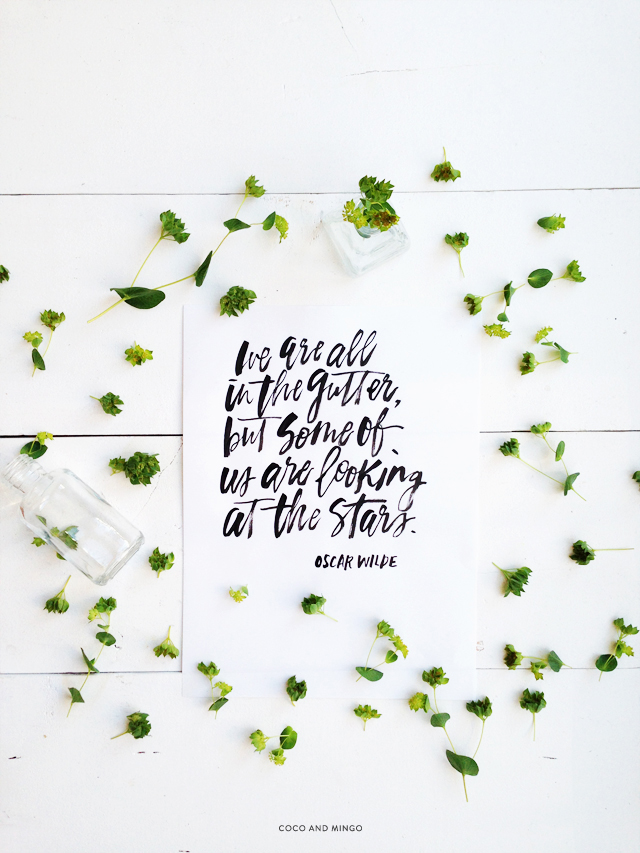 We are all
in the gutter,
but some of
us are looking
at the stars.
OSCAR WILDE
COCO AND MINGO